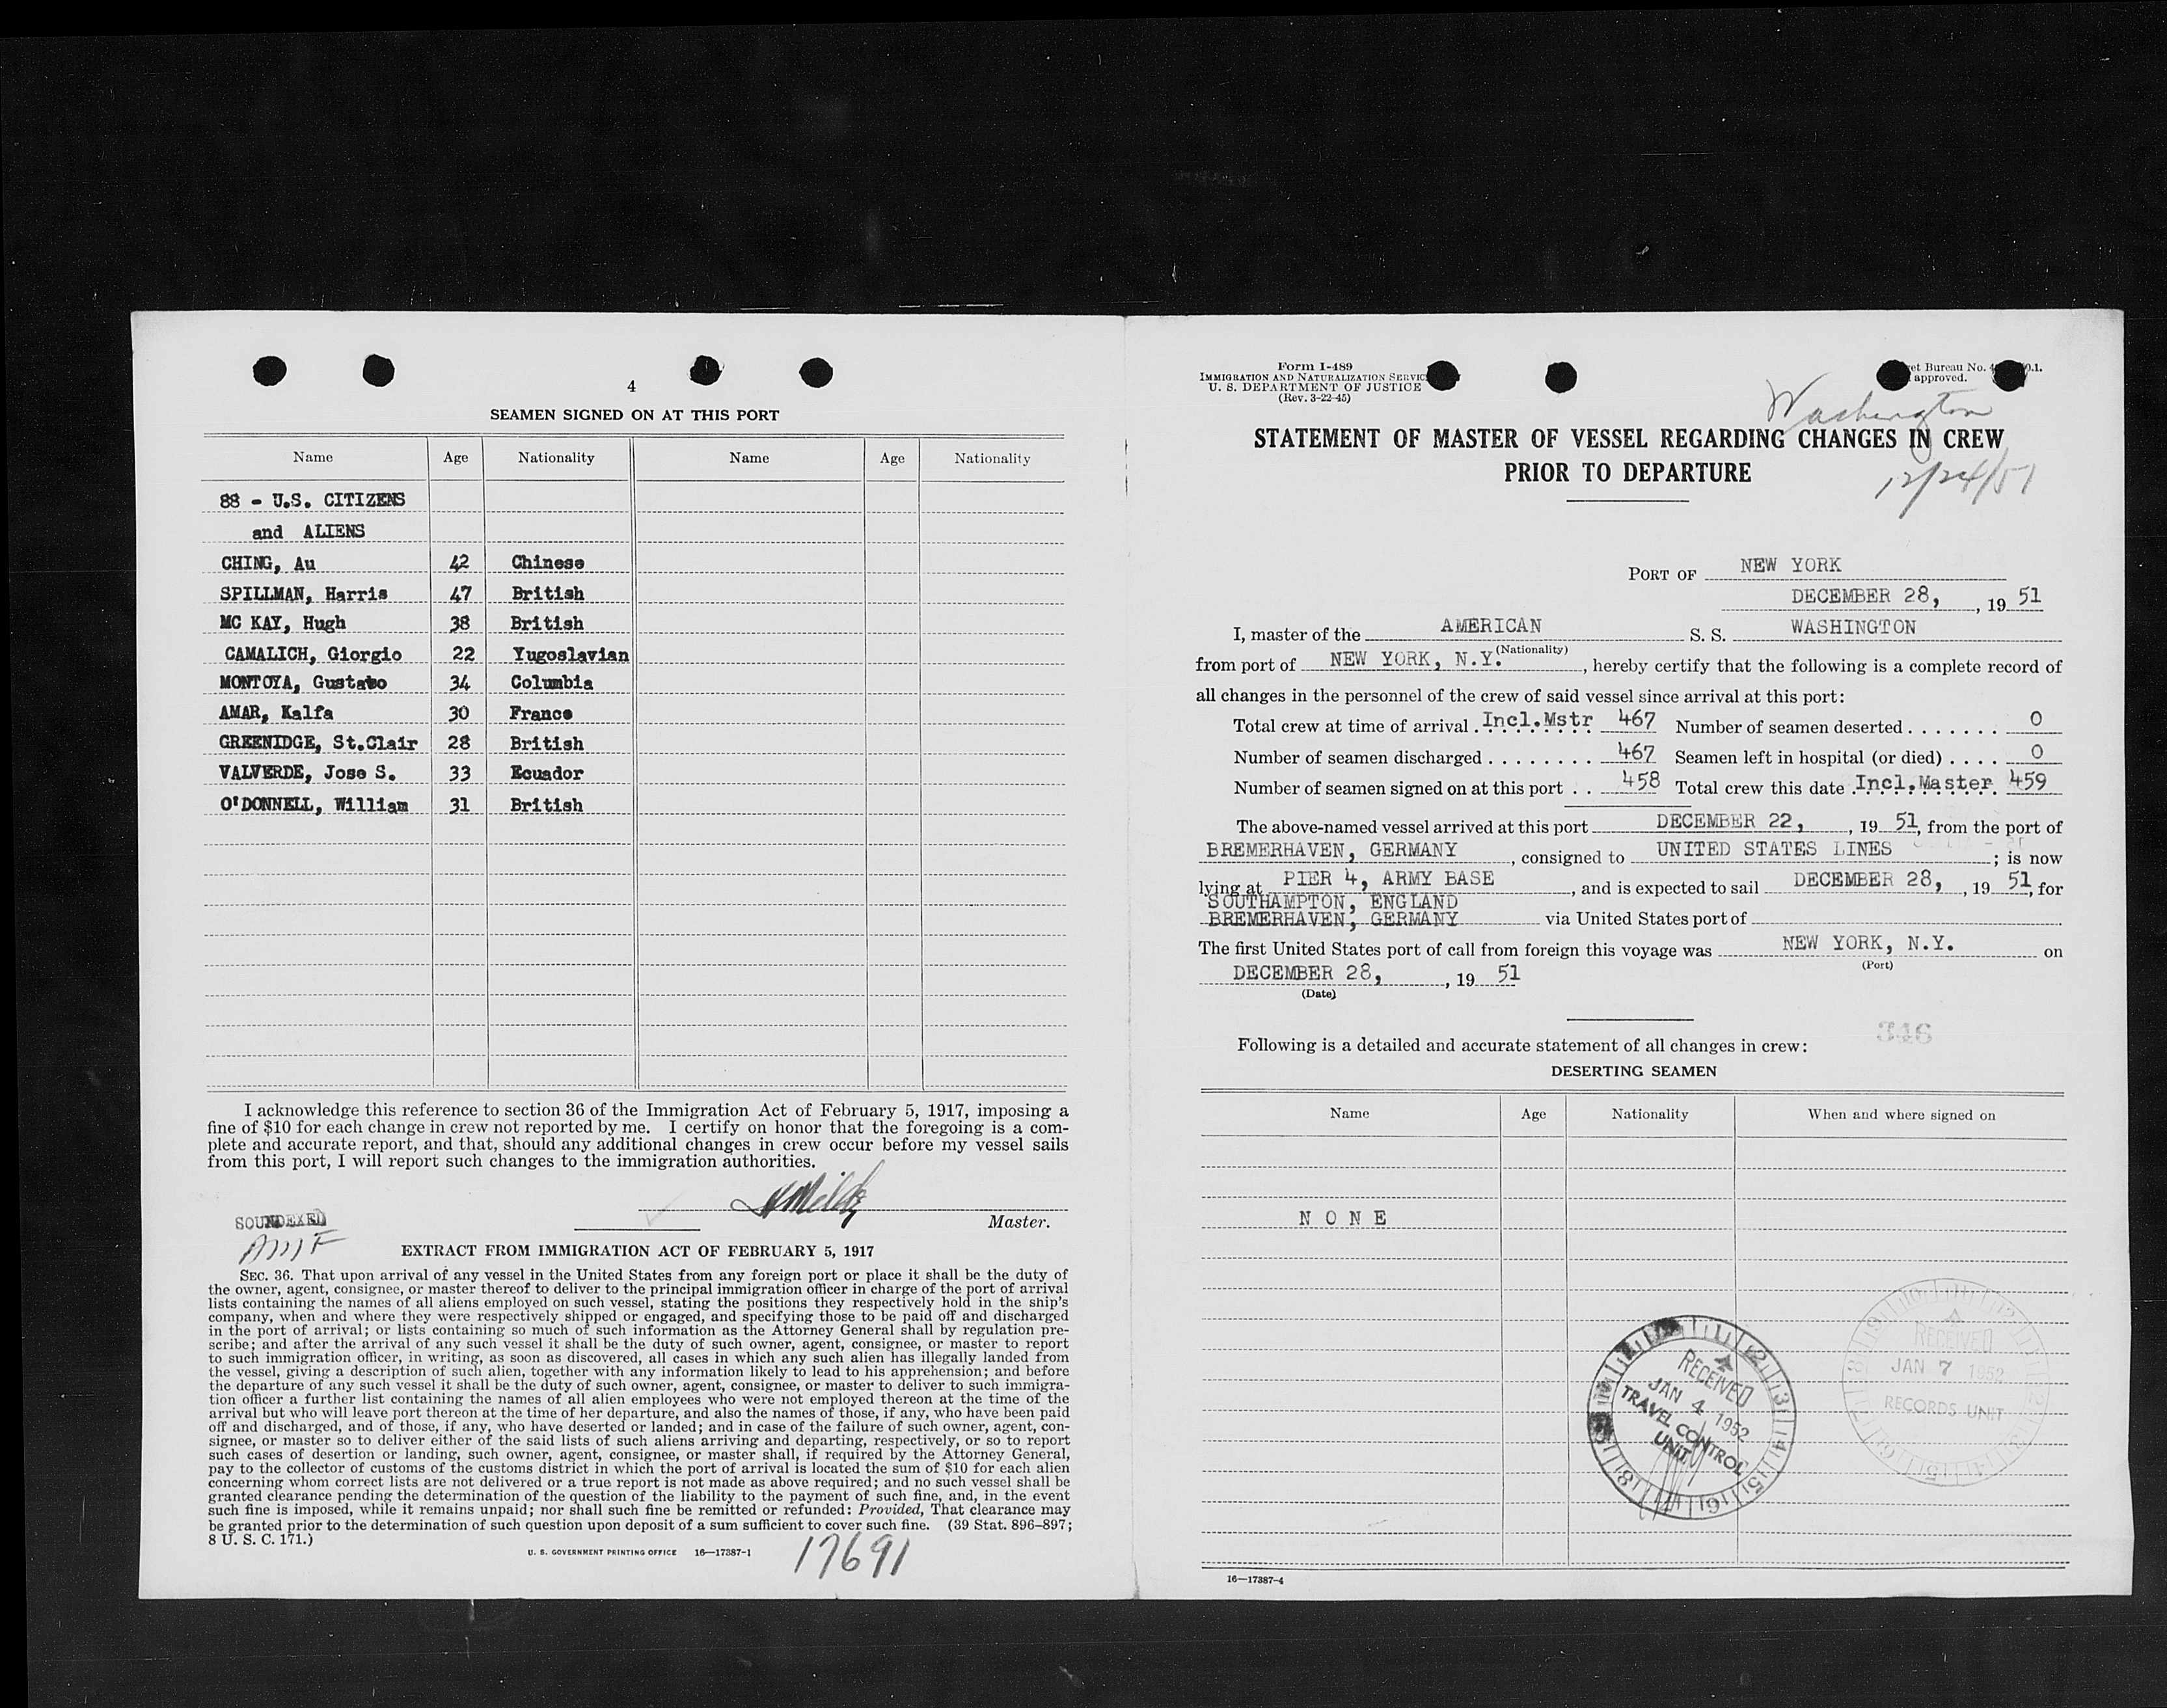 4
SEAMEN SIGNED ON AT THIS PORT
Name Age Nationality Name Age Nationality
88 - U.S. CITIZENS
and ALIENS
CHING, Au 42 Chinese
SPILLMAN, Harris 47 British
MC KAY, Hugh 38 British
CAMALICH, Giorgio 22 Yugoslavian
MONTOYA, Gustavo 34 Columbia
AMAR, Kalfa 30 France
GREENIDGE, St.Clair 28 British
VALVERDE, Jose S. 33 Ecuador
O'DONNELL, William 31 British
I acknowledge this reference to section 36 of the Immigration Act of February 5, 1917, imposing a
fine of $10 for each change in crew not reported by me. I certify on honor that the foregoing is a com-
plete and accurate report, and that, should any additional changes in crew occur before my vessel sails
from this port, I will report such changes to the immigration authorities.
Master.
SOUNDEXED
AMF
EXTRACT FROM IMMIGRATION ACT OF FEBRUARY 5, 1917
SEC. 36. That upon arrival of any vessel in the United States from any foreign port or place it shall be the duty of
the owner, agent, consignee, or master thereof to deliver to the principal immigration officer in charge of the port of arrival
lists containing the names of all aliens employed on such vessel, stating the positions they respectively hold in the ship's
company, when and where they were respectively shipped or engaged, and specifying those to be paid off and discharged
in the port of arrival; or lists containing so much of such information as the Attorney General shall by regulation pre-
scribe; and after the arrival of any such vessel it shall be the duty of such owner, agent, consignee, or master to report
to such immigration officer, in writing, as soon as discovered, all cases in which any such alien has illegally landed from
the vessel, giving a description of such alien, together with any information likely to lead to his apprehension; and before
the departure of any such vessel it shall be the duty of such owner, agent, consignee, or master to deliver to such immigra-
tion officer a further list containing the names of all alien employees who were not employed thereon at the time of the
arrival but who will leave port thereon at the time of her departure, and also the names of those, if any, who have been paid
off and discharged, and of those, if any, who have deserted or landed; and in case of the failure of such owner, agent, con-
signee, or master so to deliver either of the said lists of such aliens arriving and departing, respectively, or so to report
such cases of desertion or landing, such owner, agent, consignee, or master shall, if required by the Attorney General,
pay to the collector of customs of the customs district in which the port of arrival is located the sum of $10 for each alien
concerning whom correct lists are not delivered or a true report is not made as above required; and no such vessel shall be
granted clearance pending the determination of the question of the liability to the payment of such fine, and, in the event
such fine is imposed, while it remains unpaid; nor shall such fine be remitted or refunded: Provided, That clearance may
be granted prior to the determination of such question upon deposit of a sum sufficient to cover such fine. (39 Stat. 896-897;
8 U. S. C. 171.)
U. S. GOVERNMENT PRINTING OFFICE 16—17387-1
17691
Form I-489
IMMIGRATION AND NATURALIZATION SERVIC
U. S. DEPARTMENT OF JUSTICE
(Rev. 3-22-45)
et Bureau No. 4 0.1.
approved.
Washington
STATEMENT OF MASTER OF VESSEL REGARDING CHANGES IN CREW
PRIOR TO DEPARTURE
12/24/51
PORT OF NEW YORK
DECEMBER 28, , 19 51
I, master of the AMERICAN S. S. WASHINGTON
(Nationality)
from port of NEW YORK, N.Y. , hereby certify that the following is a complete record of
all changes in the personnel of the crew of said vessel since arrival at this port:
Total crew at time of arrival . Incl.Mstr 467 Number of seamen deserted . . . . . . . 0
Number of seamen discharged . . . . . . . . 467 Seamen left in hospital (or died) . . . . 0
Number of seamen signed on at this port . . 458 Total crew this date . Incl.Master. 459
The above-named vessel arrived at this port DECEMBER 22, , 19 51, from the port of
BREMERHAVEN, GERMANY , consigned to UNITED STATES LINES ; is now
lying at PIER 4, ARMY BASE , and is expected to sail DECEMBER 28, , 19 51, for
SOUTHAMPTON, ENGLAND
BREMERHAVEN, GERMANY via United States port of
The first United States port of call from foreign this voyage was NEW YORK, N.Y. on
(Port)
DECEMBER 28, , 19 51
(Date)
346
Following is a detailed and accurate statement of all changes in crew:
DESERTING SEAMEN
Name Age Nationality When and where signed on
N O N E
RECEIVED
JAN 4 1952
TRAVEL CONTROL
UNIT
RECEIVED
JAN 7 1952
RECORDS UNIT
16—17387-4